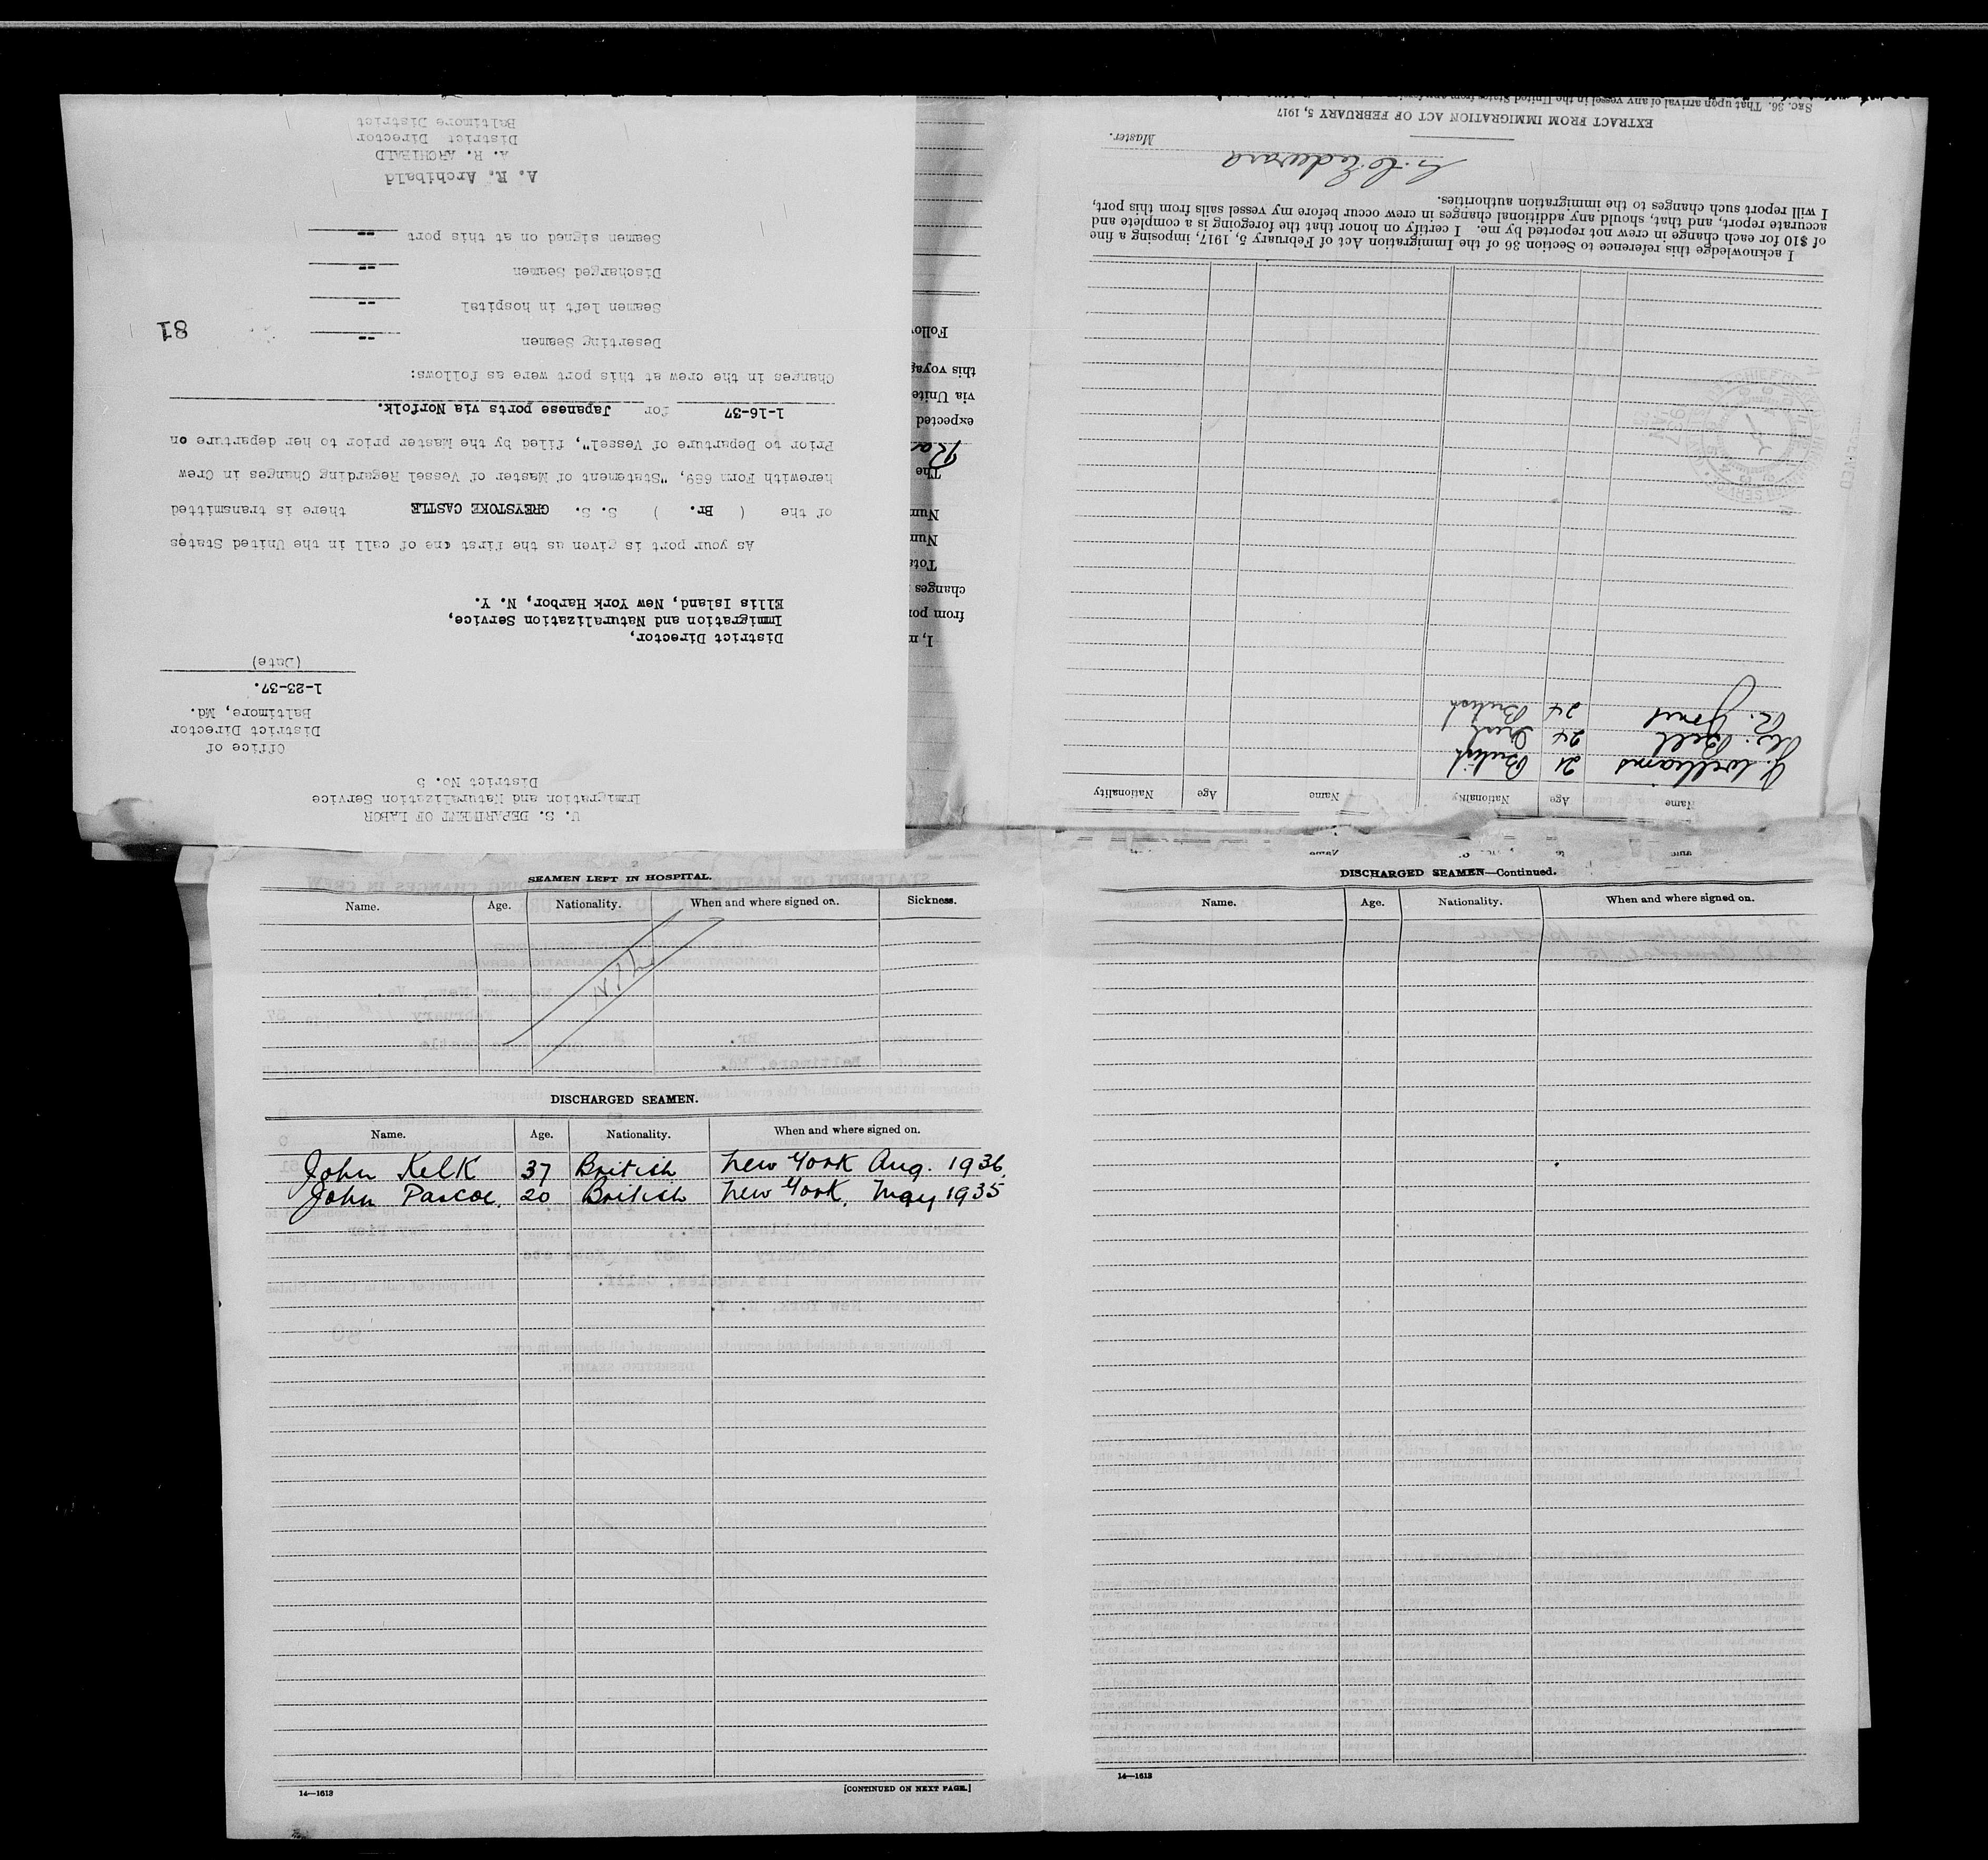 U. S. DEPARTMENT OF LABOR
Immigration and Naturalization Service
District No. 5
Office of
District Director
Baltimore, Md.
1-23-37.
(Date)
District Director,
Immigration and Naturalization Service,
Ellis Island, New York Harbor, N. Y.
As your port is given as the first one of call in the United States
of the ( Br. ) S. S. GREYSTOKE CASTLE there is transmitted
herewith Form 689, "Statement of Master of Vessel Regarding Changes in Crew
Prior to Departure of Vessel", filed by the Master prior to her departure on
1-16-37 for Japanese ports via Norfolk.
Changes in the crew at this port were as follows:
Deserting Seamen --
Seamen left in hospital --
Discharged Seamen --
Seamen signed on at this port --
81
A. R. Archibald
A. R. ARCHIBALD
District Director
Baltimore District
I, m
from por
changes
Tota
Num
Num
The
Ra
expected
via Unite
this voyag
Follov
Name Age Nationality Name Age Nationality
J. Williams 21 British
Bell 24
R. Jones 24 British
I acknowledge this reference to Section 36 of the Immigration Act of February 5, 1917, imposing a fine
of $10 for each change in crew not reported by me. I certify on honor that the foregoing is a complete and
accurate report, and that, should any additional changes in crew occur before my vessel sails from this port,
I will report such changes to the immigration authorities.
Edward
Master.
EXTRACT FROM IMMIGRATION ACT OF FEBRUARY 5, 1917
SEC. 36. That upon arrival of any vessel in the United States from any
SEAMEN LEFT IN HOSPITAL.
Name. Age. Nationality. When and where signed on. Sickness.
DISCHARGED SEAMEN.
Name. Age. Nationality. When and where signed on.
John Kelk 37 British New York Aug. 1936.
John Pascoe. 20 British New York. May 1935
14—1613
[CONTINUED ON NEXT PAGE.]
DISCHARGED SEAMEN—Continued.
Name. Age. Nationality. When and where signed on.
14—1613